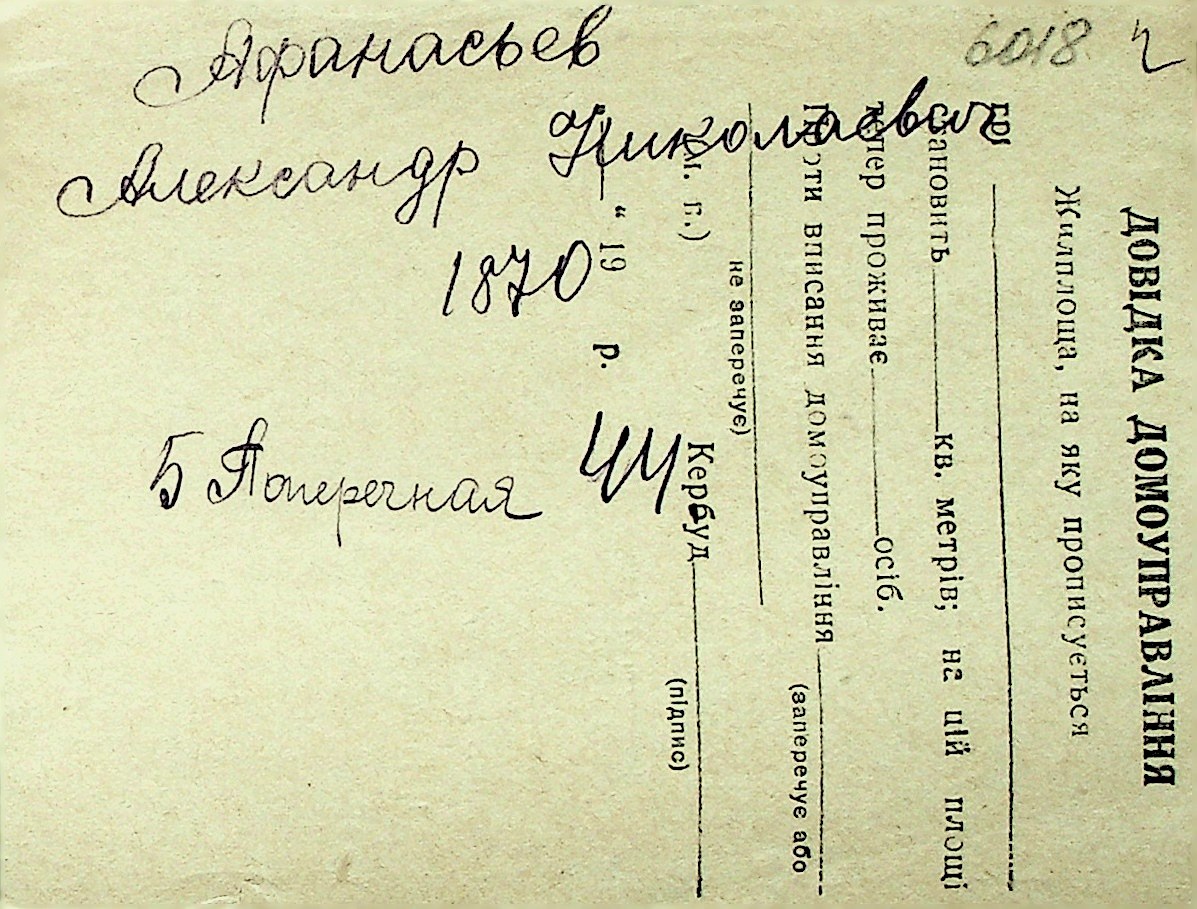 6018
Афанасьев
Александр Николаевич
1870
5 Поперечная 44
ДОВІДКА ДОМОУПРАВЛІННЯ
Жилплоща, на яку прописується
гр.
становить кв. метрів; на цій площі
тепер проживає осіб.
Проти вписання домоуправління
(заперечує або
не заперечує)
(м. п.)
" 19 р.
Кербуд
(підпис)